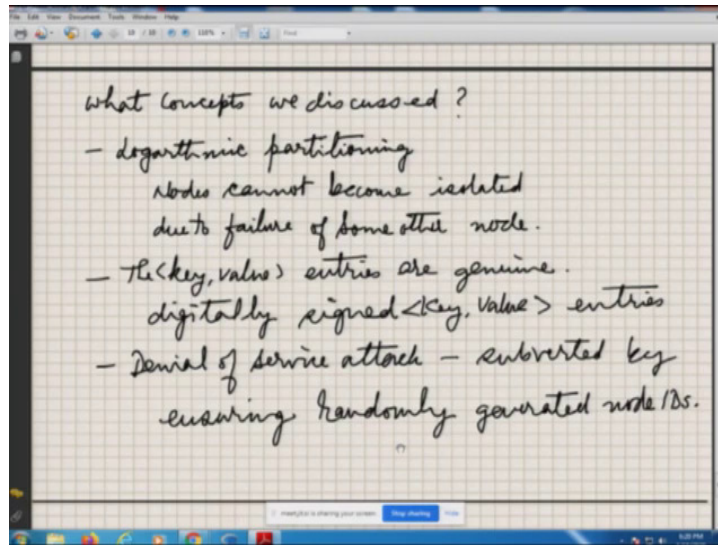 File Edit View Document Tools Window Help
18 / 18 118% Find
What Concepts we discussed ?
- Logarthmic partitioning
Nodes cannot become isolated
due to failure of some other node.
- The <key, value> entries are genuine.
digitally signed <key, value> entries
- Denial of service attack - subverted by
ensuring randomly generated node IDs.
is sharing your screen. Stop sharing Hide